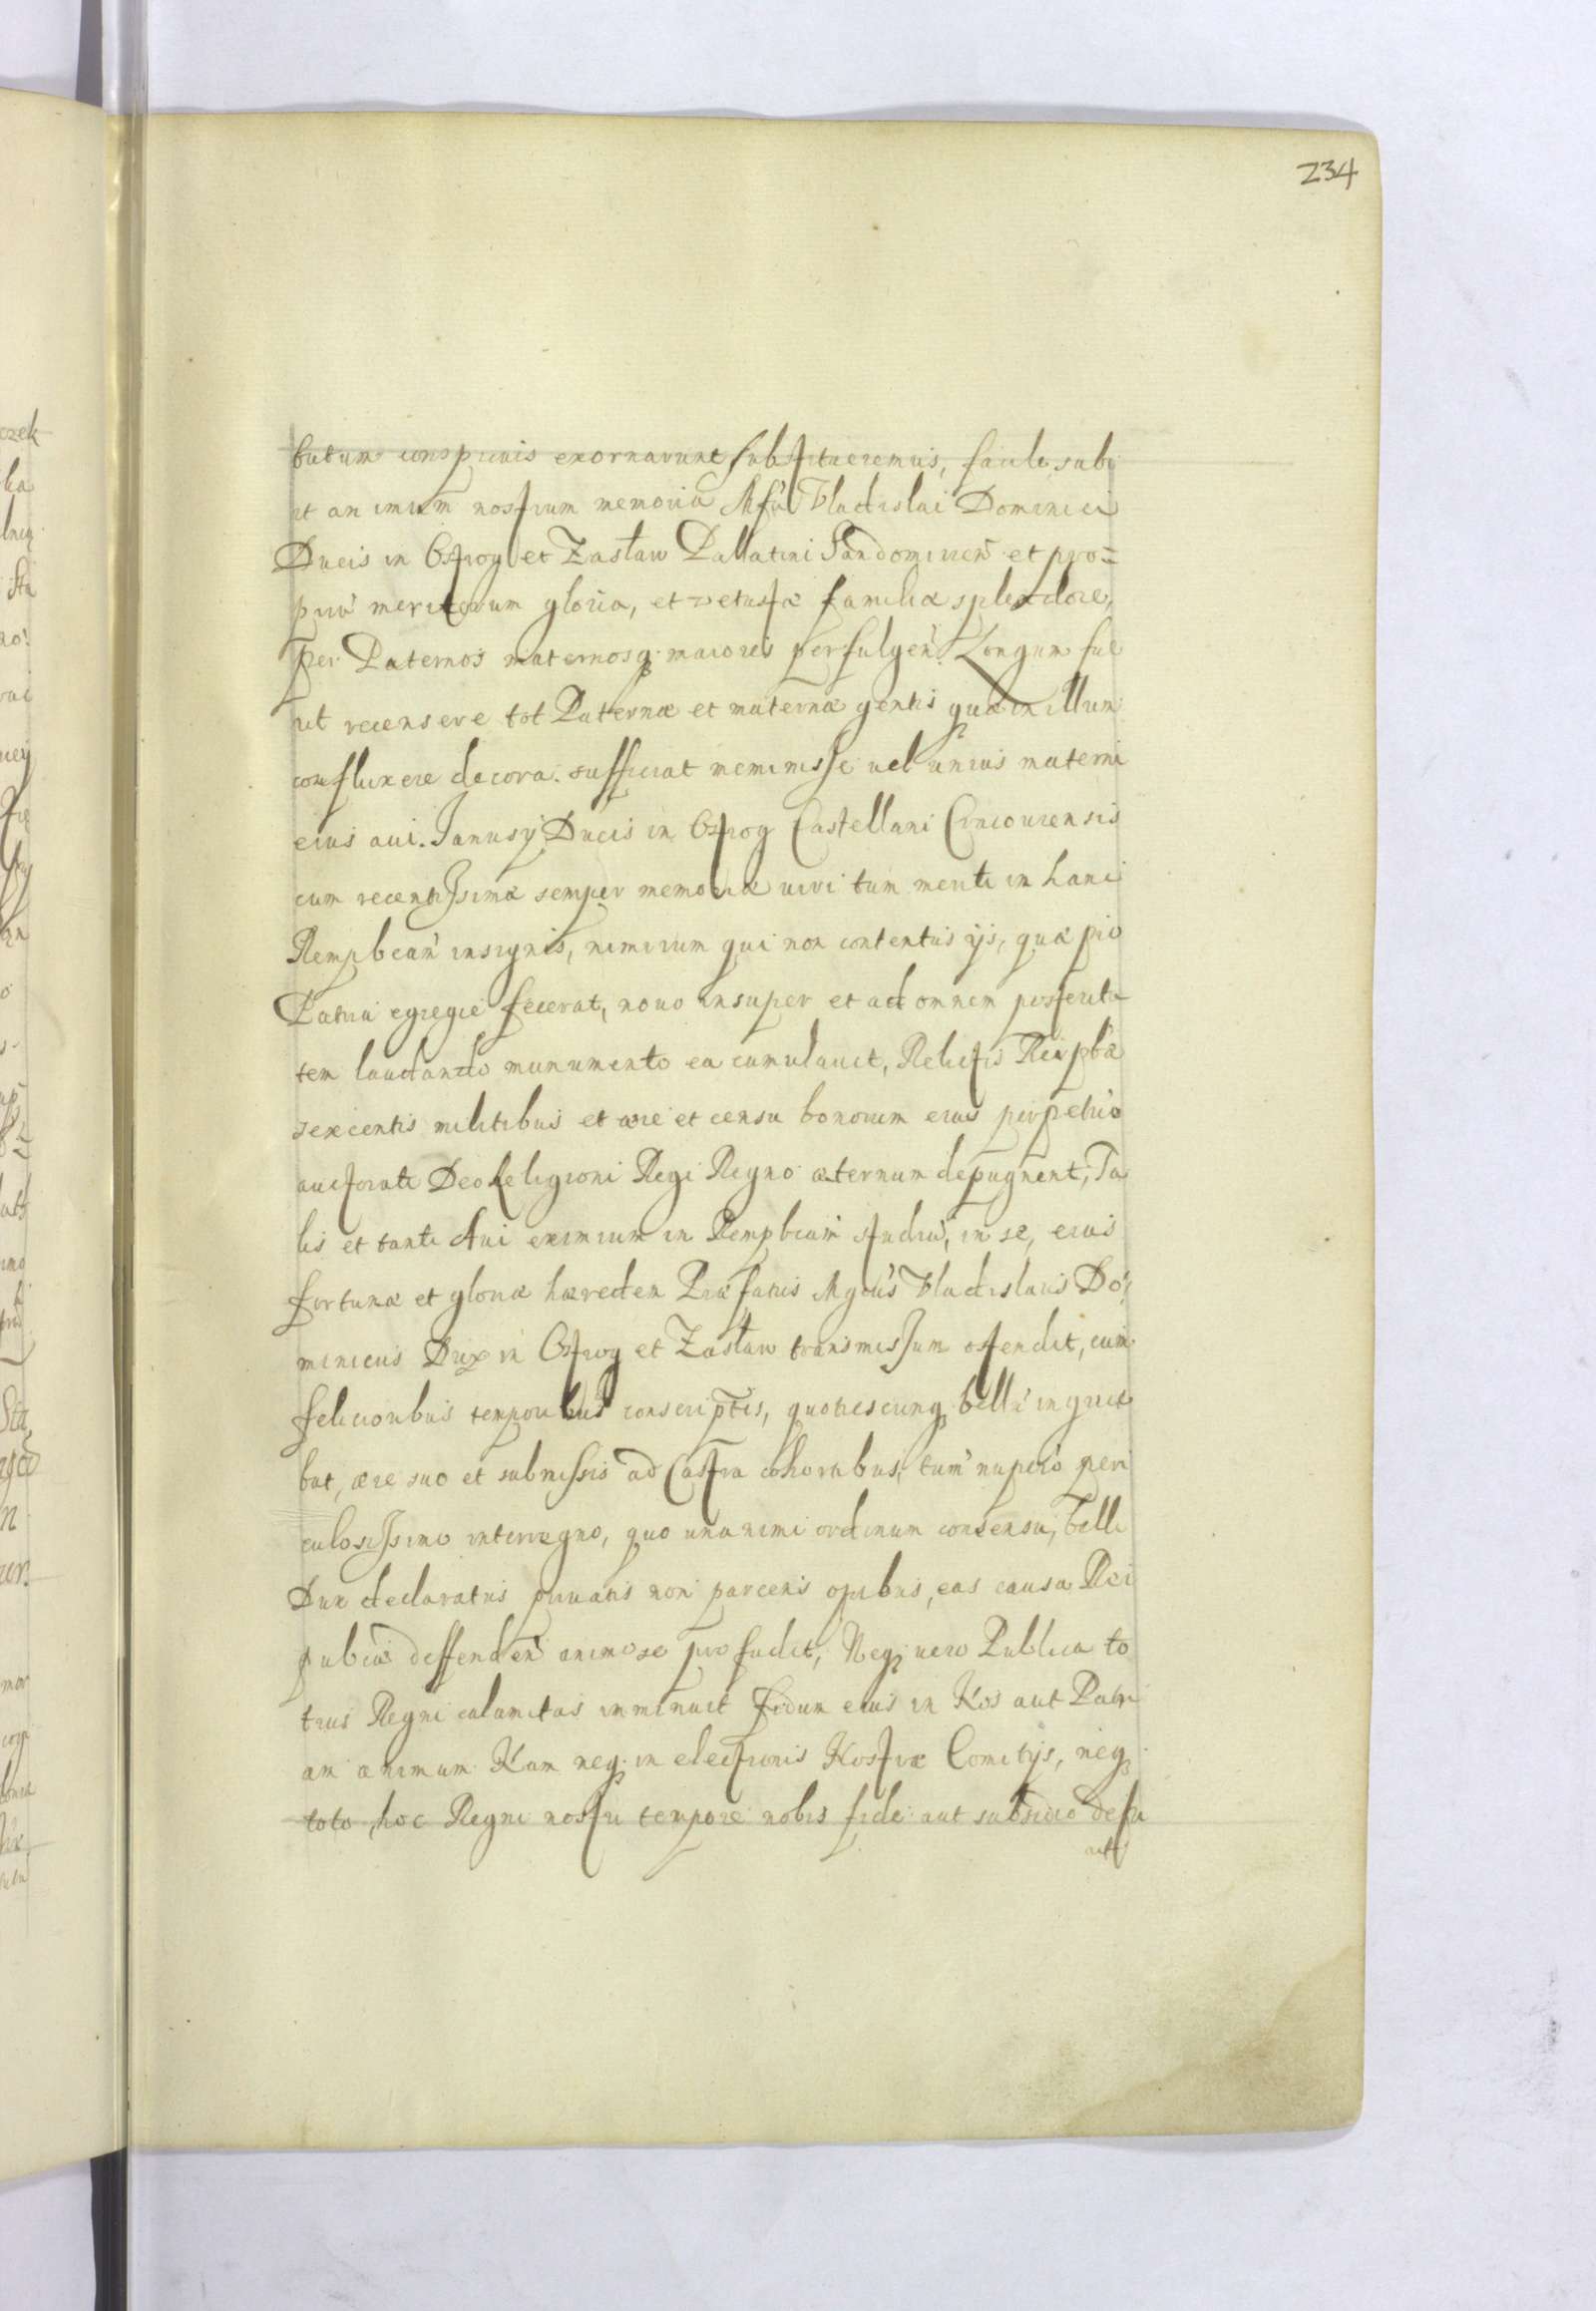 234
butum conspicuis exornarunt substitueremus, facile subi
it animum nostrum memoria Mfci Vladislai Dominici
Ducis in Ostrog et Zasław Pallatini Sandomirien et pro=
priu meritorum gloria, et vetustæ familiæ splendore,
per Paternos maternosq. maiores perfulgen. Longum fue
rit recensere tot Paternæ et maternæ gentis quæ in illum
confluxere decora. sufficiat meminisse vel unius materni
eius aui. Janusÿ Ducis in Ostrog Castellani Cracouiensis
cum recentissimæ semper memoriæ viri tum merite in hanc
Rempbcam insignis, nimirum qui non contentus ijs, quæ pro
Patria egregie fecerat, nouo insuper et ad omnem posterita
tem laudando munumento ea cumulauit, Relictis Reipbcæ
sexcentis militibus et ære et censu bonorum eius perpetuo
auctorati Deo Religioni Regi Regno æternum depugnent, Ta
lis et tanti Aui eximium in Rempbcam studiu, in se, eius
fortunæ et gloriæ hæredem Præfatus Mgcus Vladislaus Do,
minicus Dux in Ostrog et Zasław transmissum ostendit, cum
felicioribus temporibus conscriptis, quotiescunq. bellu ingrue
bat, ære suo et submissis ad Castra cohortibus, tum nupero peri
culosissimo interregno, quo unanimi ordinum consensu, belli
Dux declaratus priuatis non parcens opibus, eas causa Rei
pubcæ deffenden animose profudit, Neq. uero Publica to
tius Regni calamitas imminuit fidum eius in Nos aut Patri
am animum Nam neq. in electionis Nostræ Comitijs, neq.
toto hoc Regni nostri tempore nobis fide aut subsidio defu
it